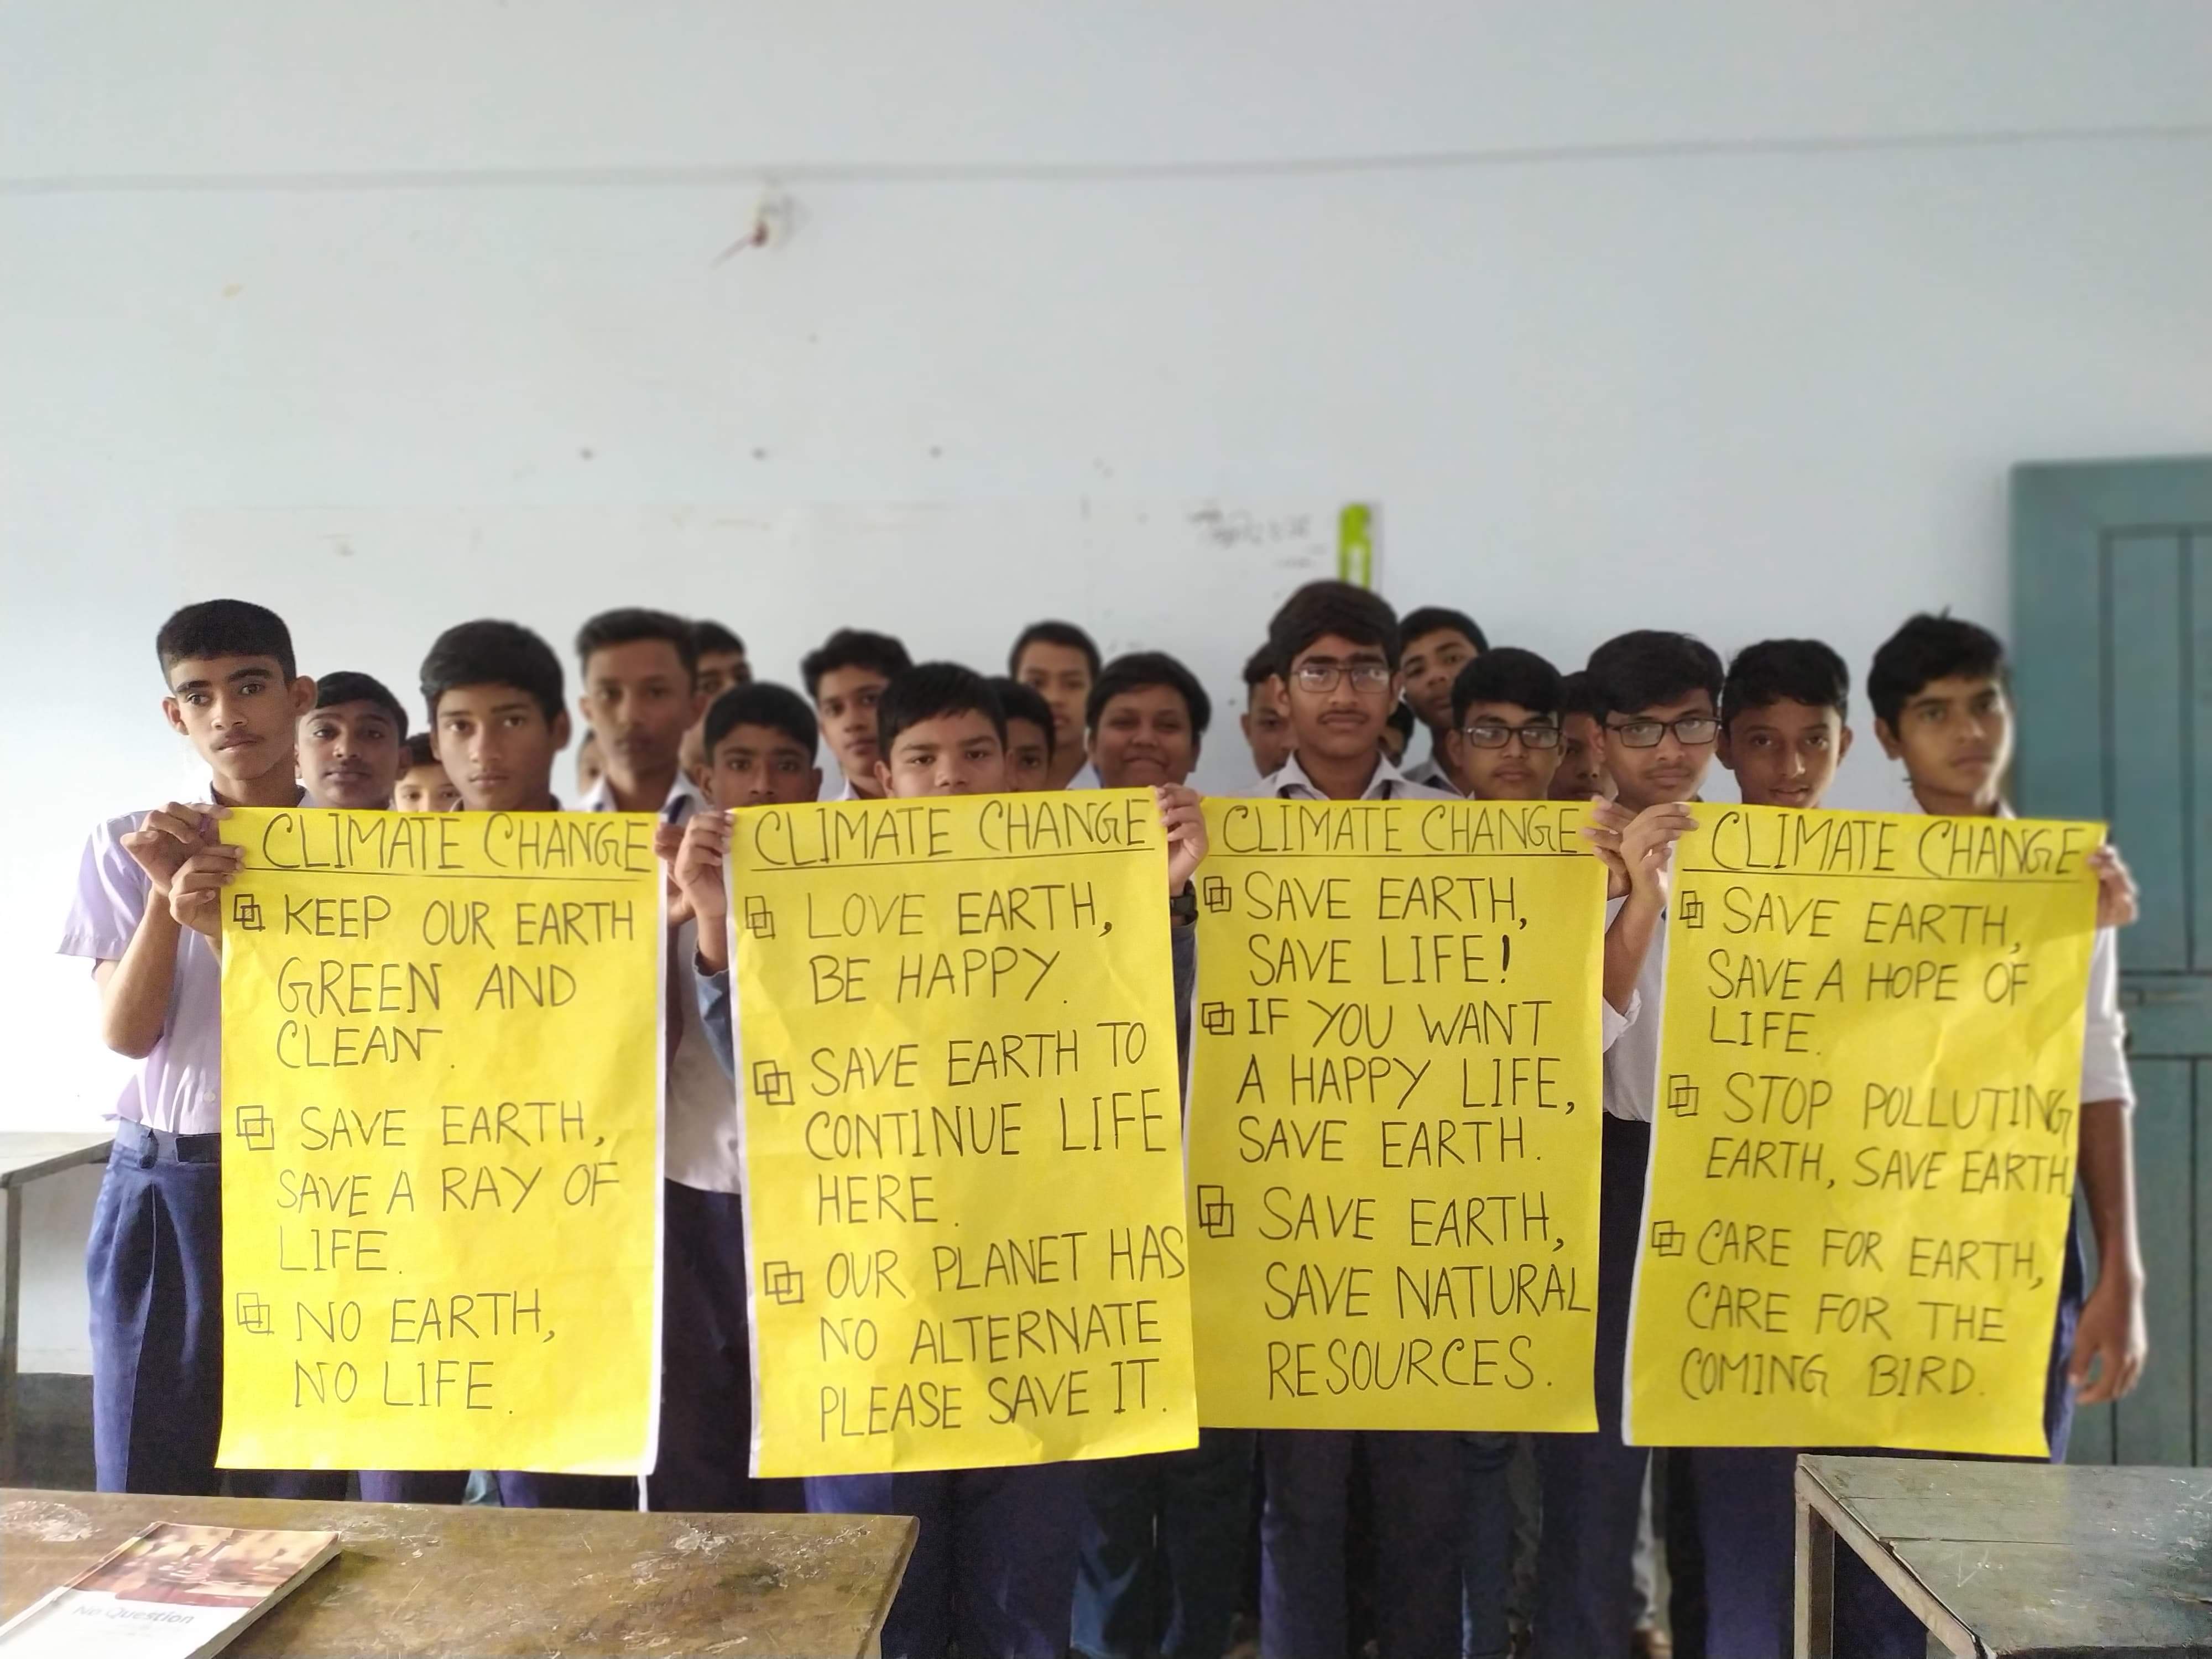 CLIMATE CHANGE
KEEP OUR EARTH
GREEN AND
CLEAN.
SAVE EARTH,
SAVE A RAY OF
LIFE.
NO EARTH,
NO LIFE.
CLIMATE CHANGE
LOVE EARTH,
BE HAPPY.
SAVE EARTH TO
CONTINUE LIFE
HERE.
OUR PLANET HAS
NO ALTERNATE
PLEASE SAVE IT.
CLIMATE CHANGE
SAVE EARTH,
SAVE LIFE!
IF YOU WANT
A HAPPY LIFE,
SAVE EARTH.
SAVE EARTH,
SAVE NATURAL
RESOURCES.
CLIMATE CHANGE
SAVE EARTH,
SAVE A HOPE OF
LIFE.
STOP POLLUTING
EARTH, SAVE EARTH.
CARE FOR EARTH,
CARE FOR THE
COMING BIRD.
No Question